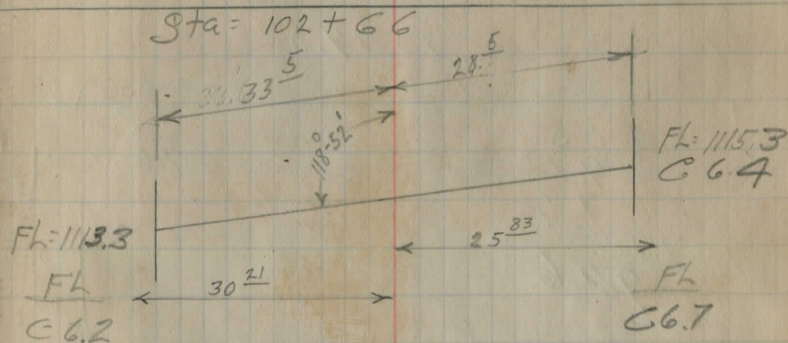 Sta = 102 + 66
33.5
28.5
118°-52'
FL = 1115.3
C 6.4
FL = 1113.3
25 83
30 21
FL
C 6.2
FL
C 6.7